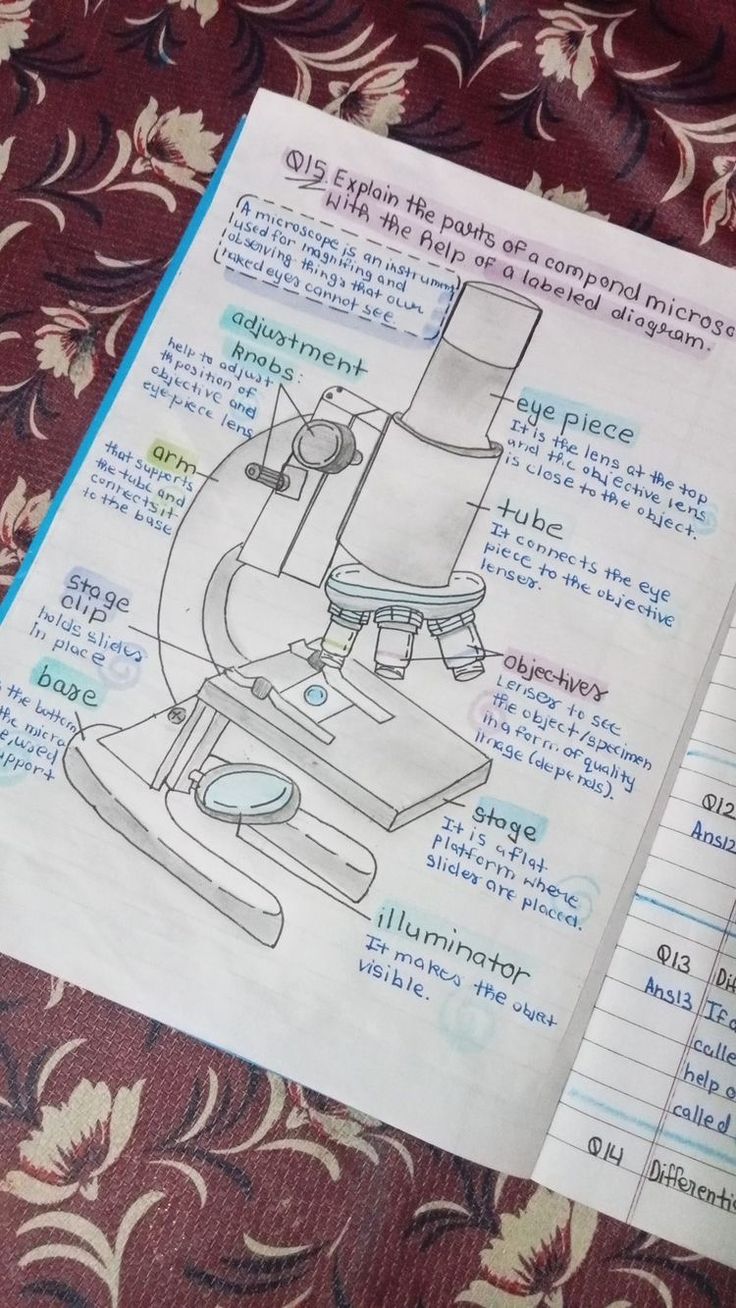 Q15. Explain the parts of a compond microsc
with the help of a labeled diagram.
A microscope is an instrumnt
used for magnifing and
observing things that our
naked eyes cannot see.
adjustment
knobs:
help to adjust
th position of
objective and
eyepiece lens
arm
that supports
the tube and
connects it
to the base
stage
clip
holds slides
in place
base
the bottom
the micro
e, used
pport
eye piece
It is the lens at the top
and the objective lens
is close to the object.
tube
It connects the eye
piece to the objective
lenses.
Objectives
Lenses to see
the object/specimen
in a form of quality
image (depends).
stage
It is a flat
platform where
slides are placed.
illuminator
It makes the objet
visible.
Q12
Ans12
Q13 Dif
Ans13 If a
calle
help o
called
Q14 Differenti